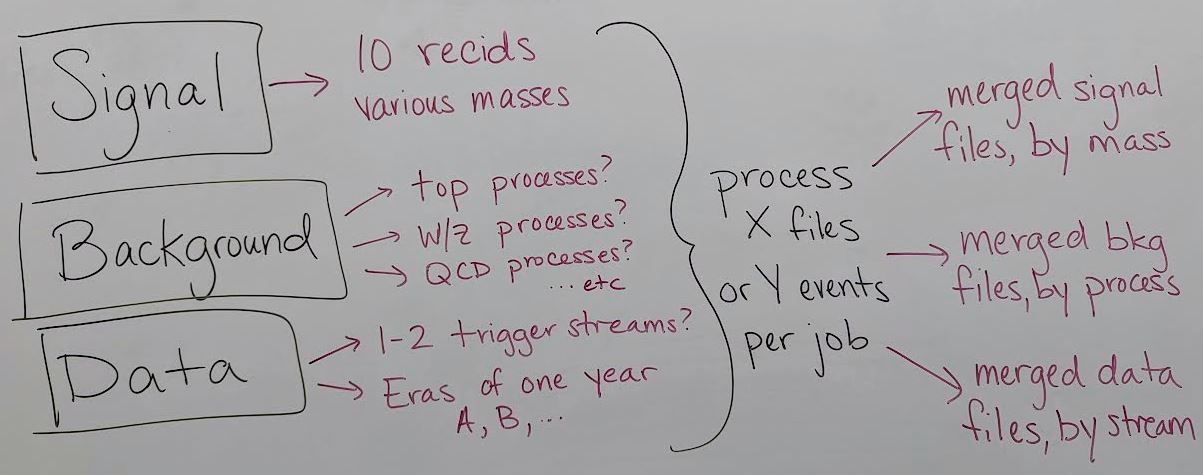 Signal
10 recids
various masses
Background
top processes?
W/Z processes?
QCD processes?
... etc
Data
1-2 trigger streams?
Eras of one year
A, B, ...
process
X files
or Y events
per job
merged signal
files, by mass
merged bkg
files, by process
merged data
files, by stream